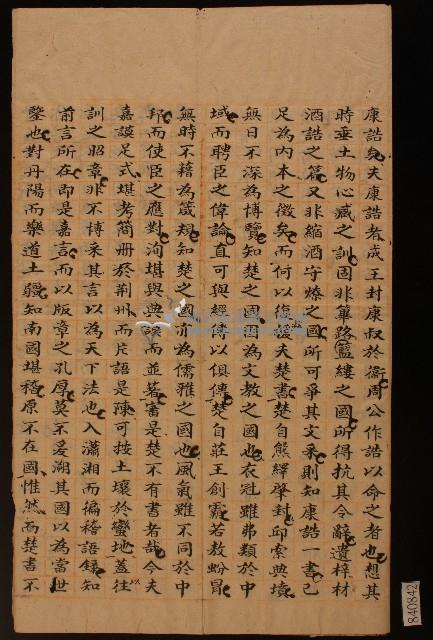 康誥矣夫康誥者成王封康叔於衞周公作誥以命之者也想其
時垂土物心臧之訓固非篳路籃縷之國所得抗其今辭遺梓材
酒誥之篇又非縮酒守燎之國所可爭其文采則知康誥一書已
足為內本之徵矣而何以復援夫楚書楚自熊繹肇封邱索典墳
無日不深為博覽知楚之國固為文教之國也衣冠雖弗類於中
域而聘臣之偉論直可與經傳以俱傳楚自莊王創霸若敖蚡冒
無時不藉為箴規知楚之國亦為儒雅之國也風氣雖不同於中
邦而使臣之應對洵堪與典謨而並著審是楚不有書者哉今夫
嘉謨足式堪考簡册於荆州而片語是陳可按土壤於蠻地蓋往
訓之昭章非不博采其言以為天下法也入瀟湘而徧稽語錄知
前言所在即是嘉言而以版章之孔厚莫不爰溯其國以為當世
鑒也對丹陽而樂道土疆知南國堪稽原不在國惟然而楚書不
840842